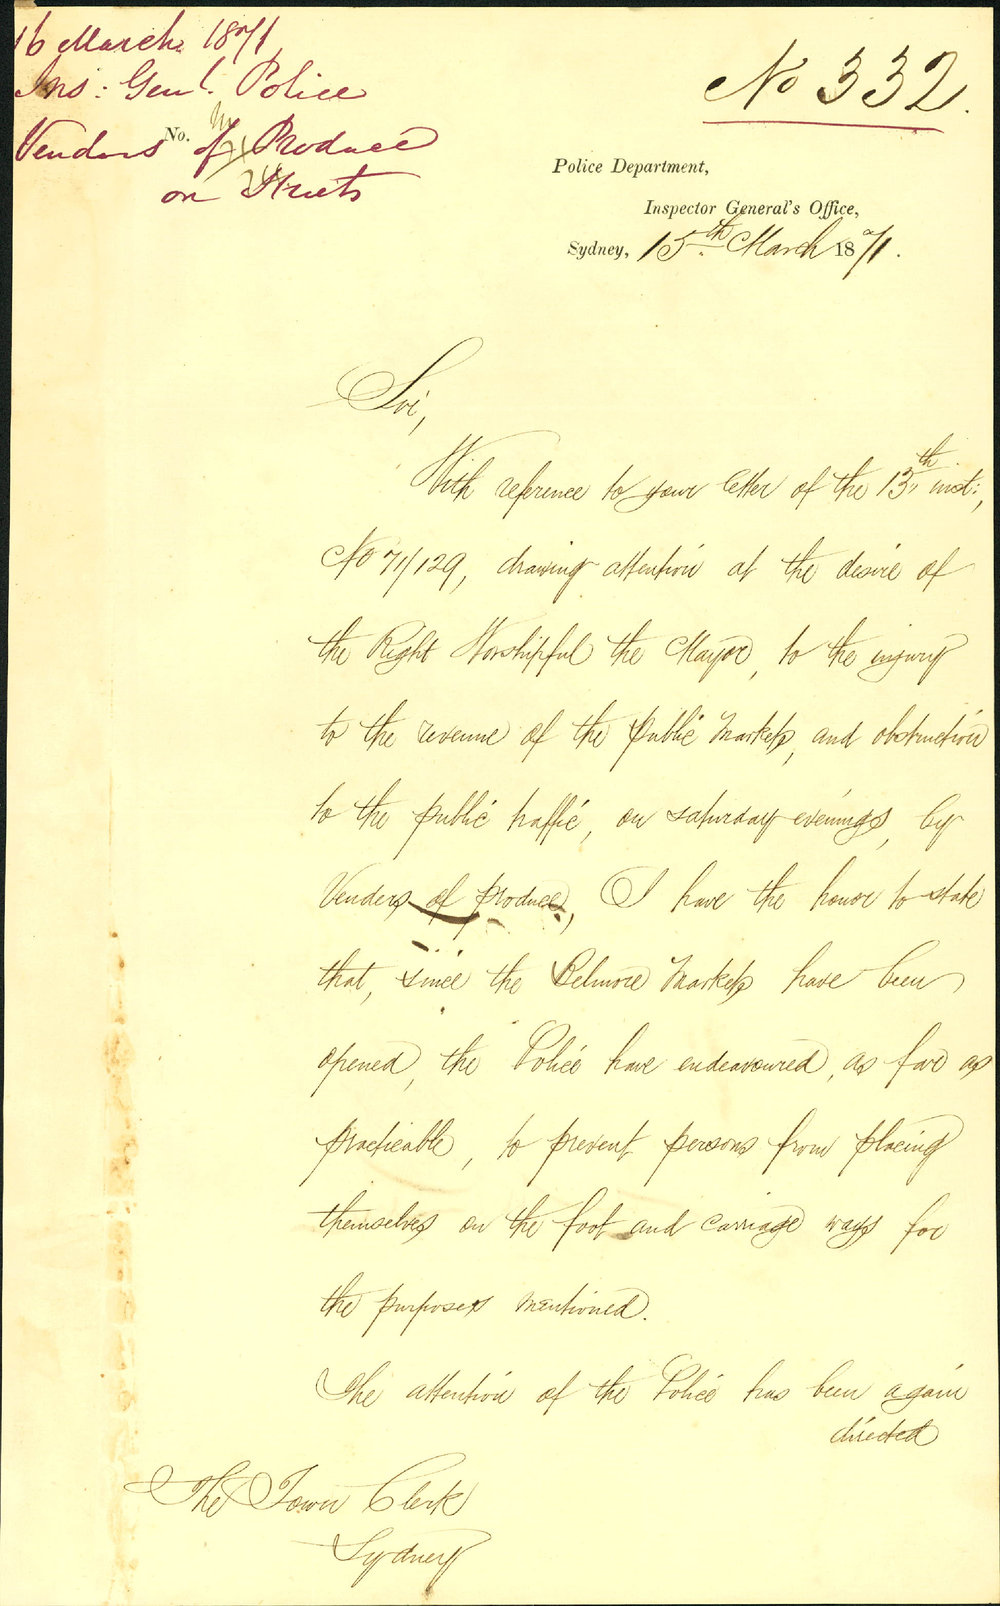 16 March 1871
Ins: Genl. Police
Vendors of Produce
on Streets
No.
No 332.
Police Department,
Inspector General's Office,
Sydney, 15th March 1871.
Sir,
With reference to your letter of the 13th inst:,
No 71/129, drawing attention at the desire of
the Right Worshipful the Mayor, to the injury
to the revenue of the Public Markets, and obstruction
to the public traffic, on saturday evenings, by
Venders of produce, I have the honor to state
that, since the Belmore Markets have been
opened, the Police have endeavoured, as far as
practicable, to prevent persons from placing
themselves on the foot and carriage ways for
the purposes mentioned.
The attention of the Police has been again
directed
The Town Clerk
Sydney